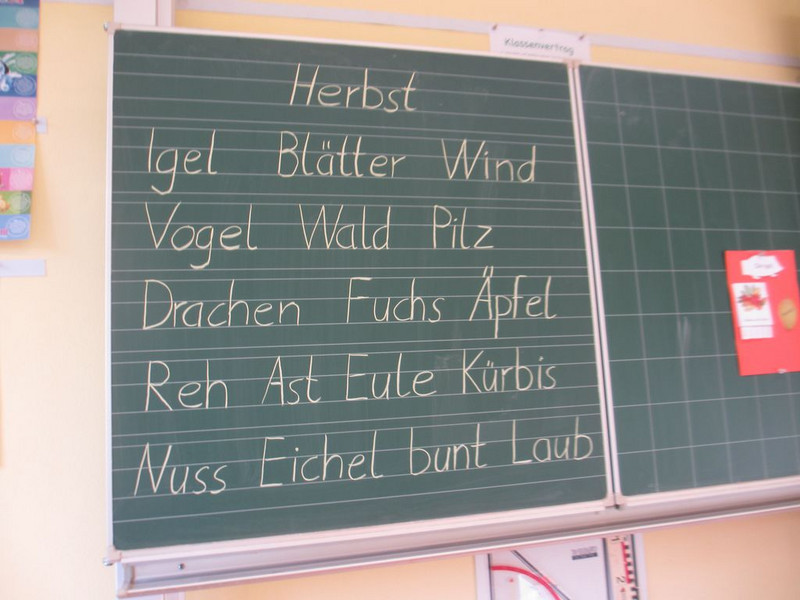 Klassenvertrag
Herbst
Igel Blätter Wind
Vogel Wald Pilz
Drachen Fuchs Äpfel
Reh Ast Eule Kürbis
Nuss Eichel bunt Laub